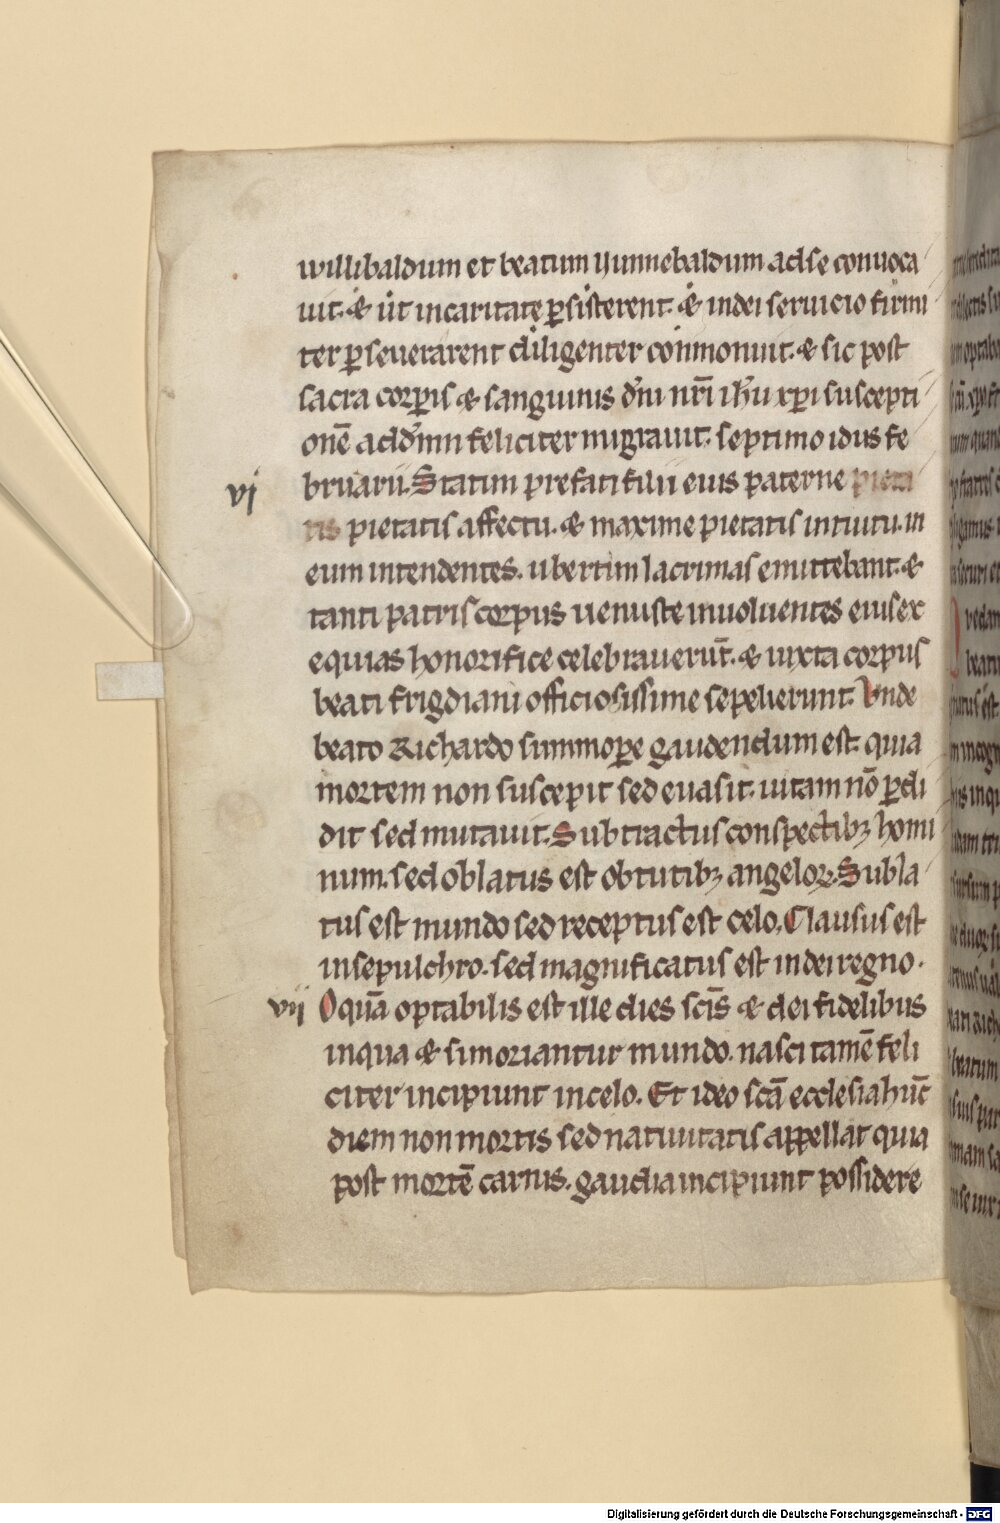 willibaldum et beatum yunnebaldum ad se conuoca
uit. & ut in caritate ꝑsisterent. & in dei seruicio firmi
ter ꝑseuerarent diligenter conmonuit. & sic post
sacra corꝑis & sanguinis dn̄i nr̄i ih̄u xp̄i suscepti
onē ad dn̄m feliciter migrauit. septimo idus fe
vi bruarii. Statim prefati filii eius paterne pieta
tis pietatis affectu. & maxime pietatis intuitu. in
eum intendentes. ubertim lacrimas emittebant. &
tanti patris corpus uenuste inuoluentes eius ex
equias honorifice celebrauerūt. & iuxta corpus
beati frigdiani officiosissime sepelierunt. Vnde
beato Richardo summoꝑe gaudendum est. quia
mortem non suscepit sed euasit. uitam nō ꝑdi
dit sed mutauit. Subtractus conspectibꝫ homi
num. sed oblatus est obtutibꝫ angeloꝝ. Subla
tus est mundo sed receptus est celo. Clausus est
in sepulchro. sed magnificatus est in dei regno.
vii O quā optabilis est ille dies scīs & dei fidelibus
in qua & si moriantur mundo. nasci tamē feli
citer incipiunt in celo. Et ideo scā ecclesia hūc
diem non mortis sed natiuitatis appellat quia
post mortē carnis. gaudia incipiunt possidere
Digitalisierung gefördert durch die Deutsche Forschungsgemeinschaft - DFG